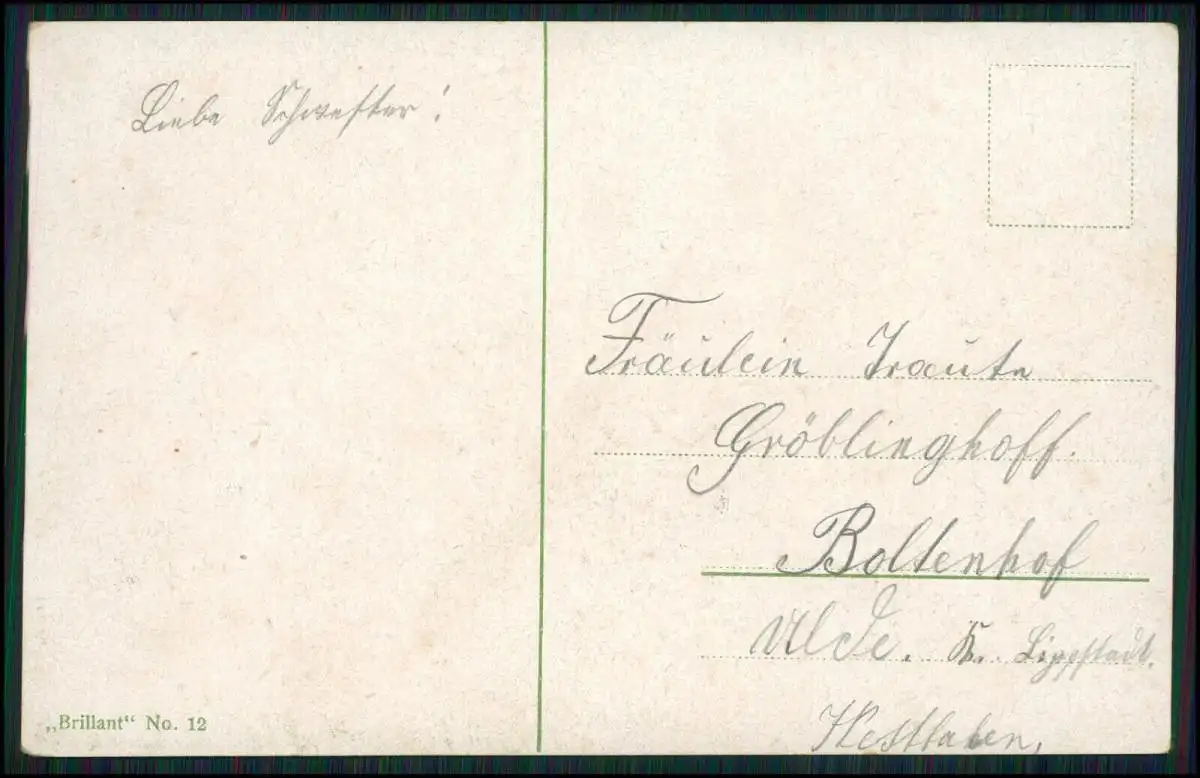 Liebe Schwester!
Fräulein Traute
Gröblinghoff.
Boltenhof
Ulde. K. Lippstadt.
Westfalen,
„Brillant“ No. 12